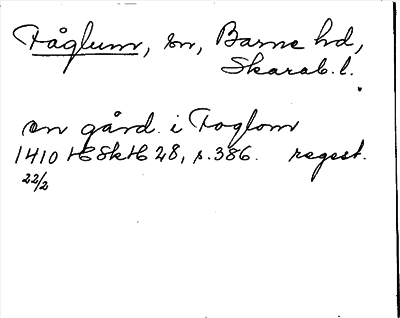 Fåglum, sn, Barne hd,
Skarab. l.
en gård i Foglom
1410 HSkH 28, s. 386. regest.
22/2